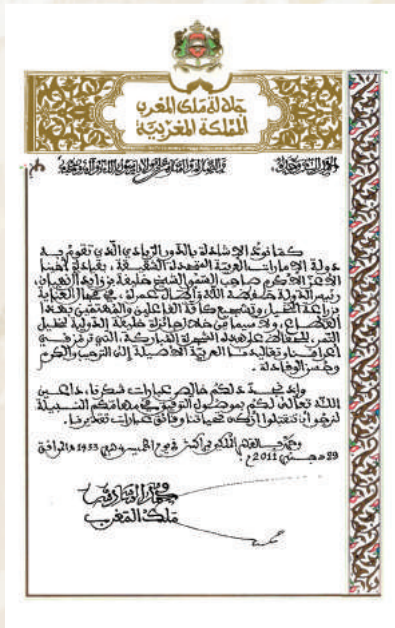 جلالة ملك المغرب
المملكة المغربية
الحمد لله وحده
كما نود الإشادة بالدور الريادي الذي تقوم به
دولة الإمارات العربية المتحدة الشقيقة، بقيادة أخينا
الأعز الأكرم صاحب السمو الشيخ خليفة بن زايد آل نهيان،
رئيس الدولة حفظه الله وأطال عمره، في مجال العناية
بزراعة النخيل وتشجيع كافة الفاعلين والمهتمين بهذا
القطاع، ولا سيما من خلال جائزة خليفة الدولية لنخيل
التمر، للحفاظ على هذه الشجرة المباركة، التي ترمز في
أعرافنا وتقاليدنا العربية الأصيلة إلى الترحيب والكرم
وحسن الوفادة.
وإذ نجدد لكم خالص عبارات شكرنا، داعين
الله تعالى لكم بموصول التوفيق في مهامكم النبيلة
لنرجو أن تتقبلوا أزكى تحياتنا وفائق عبارات تقديرنا.
وحرر بالقصر الملكي بمراكش في يوم الخميس 4 صفر 1433 هـ الموافق
29 دجنبر 2011 م.
محمد السادس
ملك المغرب